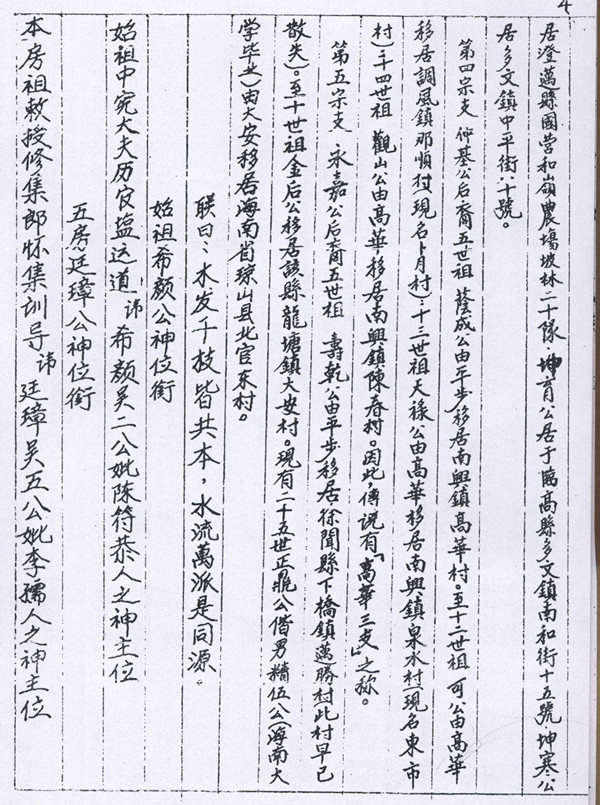 4
居澄邁縣國营和嶺農場坡林二十隊．坤育公居于臨高縣多文鎮南和街十五號．坤寒公
居多文鎮中平街八十號。
第四宗支 仲基公后裔五世祖 蔭成公由平步移居南興鎮高華村。至十二世祖 可公由高華
移居調風鎮那順村(現名卜月村)：十三世祖天祿公由高華移居南興鎮泉水村(現名東市
村)：十四世祖 觀山公由高華移居南興鎮陳春村。因此，傳说有「高華三支」之称。
第五宗支 永嘉公后裔五世祖 壽乾公由平步移居徐聞縣下橋鎮邁勝村此村早已
散失)。至十世祖金后公移居該縣龍塘鎮大安村。現有二十五世正飛公偕男精伍公(海南大
学毕业)由大安移居海南省琼山县北官东村。
联曰：木发千技皆共本，水流萬派是同源．
始祖希颜公神位衔
始祖中宪大夫历官盐运道讳希颜吴二公妣陈符恭人之神主位
五房廷璋公神位衔
本房祖敕授修集郎怀集训导讳廷璋吴五公妣李孺人之神主位